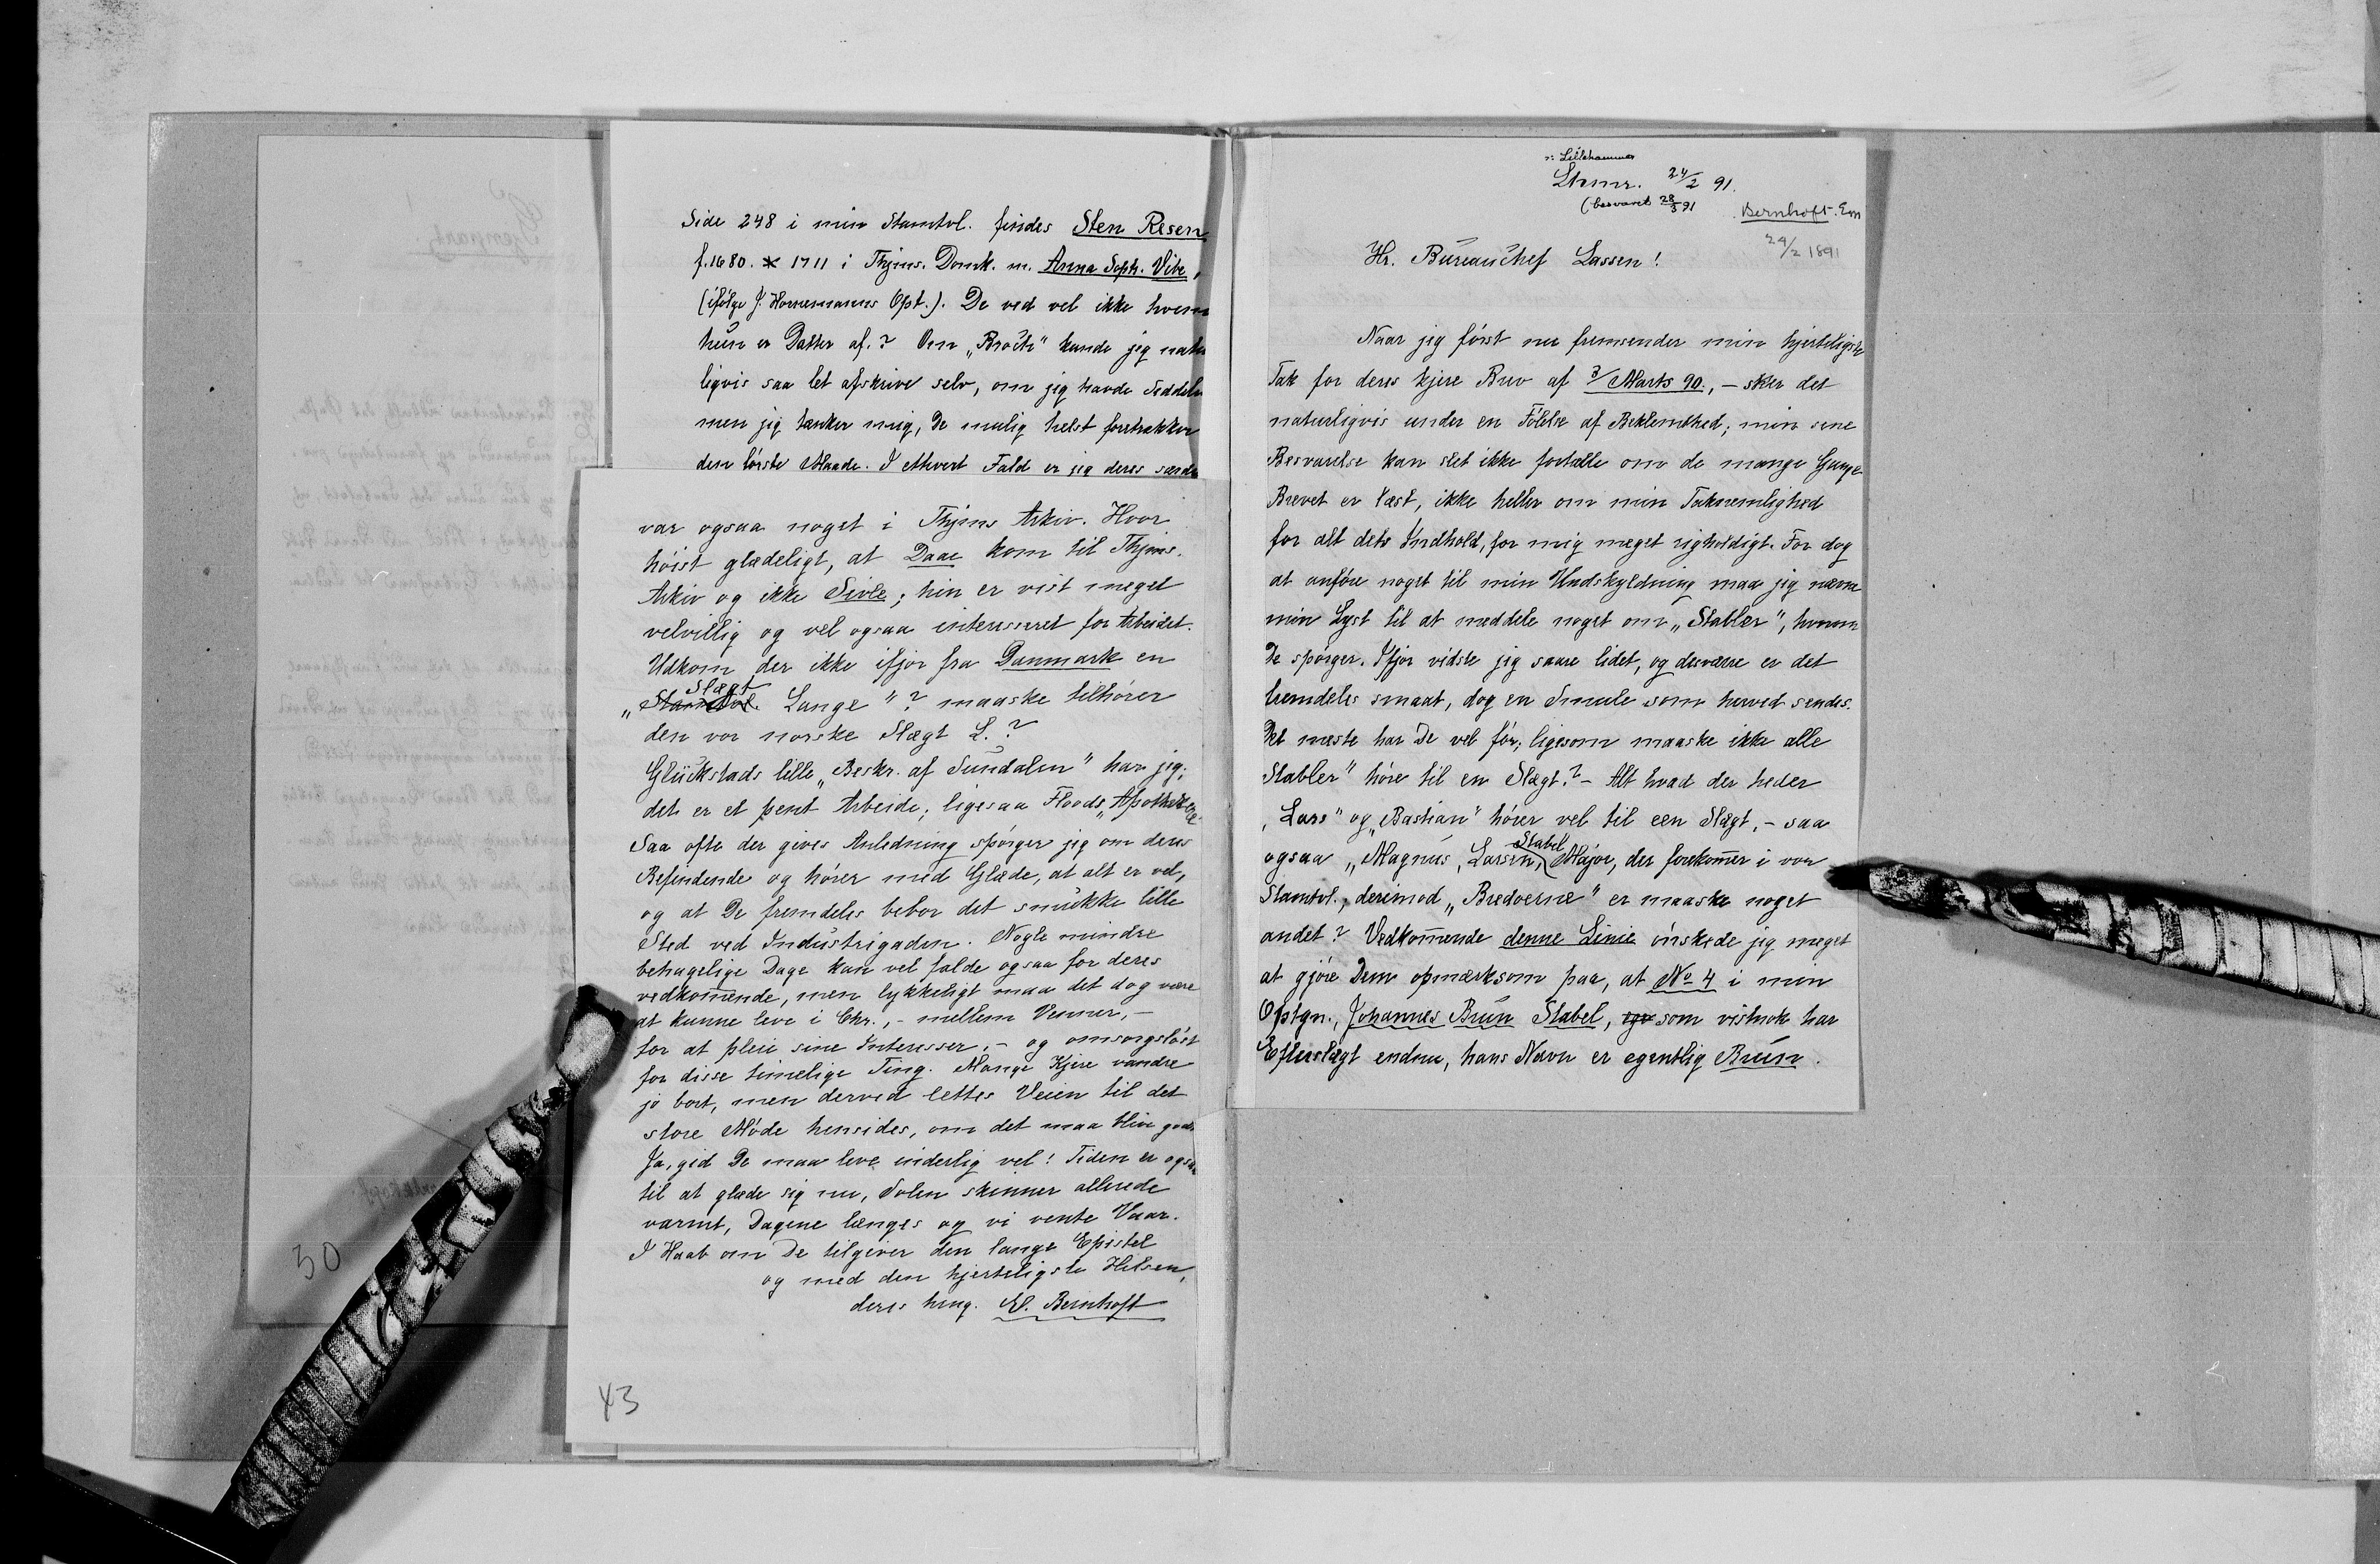 Side 248 i min Stamtvl. findes Sten Resen
f. 1680. * 1711 i Thjms. Domk. m. Anna Soph. Vibe,
(ifølge J. Hornemanns Opt.). De ved vel ikke hvem
hun er Datter af.? Om „Broch" kunde jeg natu
ligvis saa let afskrive selv, om jeg havde Seddeln
men jeg tænker mig, De mulig helst foretrækker
den første Maade. I ethvert Fald er jeg deres særde
var ogsaa noget i Thjms Arkiv. Hvor
høist glædeligt, at Daae kom til Thjms.
Arkiv og ikke Sivle; hin er vist meget
velvillig og vel ogsaa interesseret for Arbeidet.
Udkom der ikke ifjor fra Danmark en
Slægt
„Stamtvl. Lange"? maaske tilhører
den vor norske Slægt L.?
Glückstads lille „Beskr. af Sundalen" har jeg;
det er et pent Arbeide; ligesaa Floods „Apothekere
Saa ofte der gives Anledning spørger jeg om deres
Befindende og hører med Glæde, at alt er vel,
og at De fremdeles bebor det smukke lille
Sted ved Industrigaden. Nogle mindre
behagelige Dage kan vel falde ogsaa for deres
vedkommende, men lykkeligt maa det dog være
at kunne leve i Chr., - mellem Venner, -
for at pleie sine Interesser, - og omsorgsløst
for disse timelige Ting. Mange Kjere vandre
jo bort, men derved lettes Veien til det
store Møde hensides, om det maa blive godt
Ja, gid De maa leve inderlig vel! Tiden er ogsaa
til at glæde sig nu, Solen skinner allerede
varmt, Dagene længes og vi vente Vaar.
I Haab om De tilgiver den lange Epistel
og med den hjerteligste Hilsen,
deres heng. E. Bernhoft
43
30
ɔ: Lillehammer
Lhmr. 24/2 91.
(besvaret 28/3 91
Bernhoft. Em
24/2 1891
Hr. Bureauchef Lassen!
Naar jeg først nu fremsender min hjerteligste
Tak for deres kjere Brev af 3/ Marts 90., - sker det
naturligvis under en Følelse af Beklemthed; min sene
Besvarelse kan slet ikke fortælle om de mange Gange
Brevet er læst, ikke heller om min Taknemlighed
for alt dets Indhold, for mig meget righoldigt. For dog
at anføre noget til min Undskyldning maa jeg nævne
min Lyst til at meddele noget om „Stabler", hvorom
De spørger. Ifjor vidste jeg saare lidet, og desværre er det
fremdeles smaat, dog en Smule som herved sendes.
Det meste har De vel før; ligesom maaske ikke alle
Stabler" høre til en Slægt.? - Alt hvad der heder
„Lars" og „Bastian" hører vel til een Slægt, - saa
Stabel
ogsaa „Magnus, Larsen, Major, der forekommer i vor
Stamtvl., derimod „Bredoerne" er maaske noget
andet? Vedkommende denne Linie ønskede jeg meget
at gjøre Dem opmærksom paa, at No 4 i min
Optgn., Johannes Brun Stabel, som vistnok har
Efterslægt endnu, hans Navn er egentlig Brun.